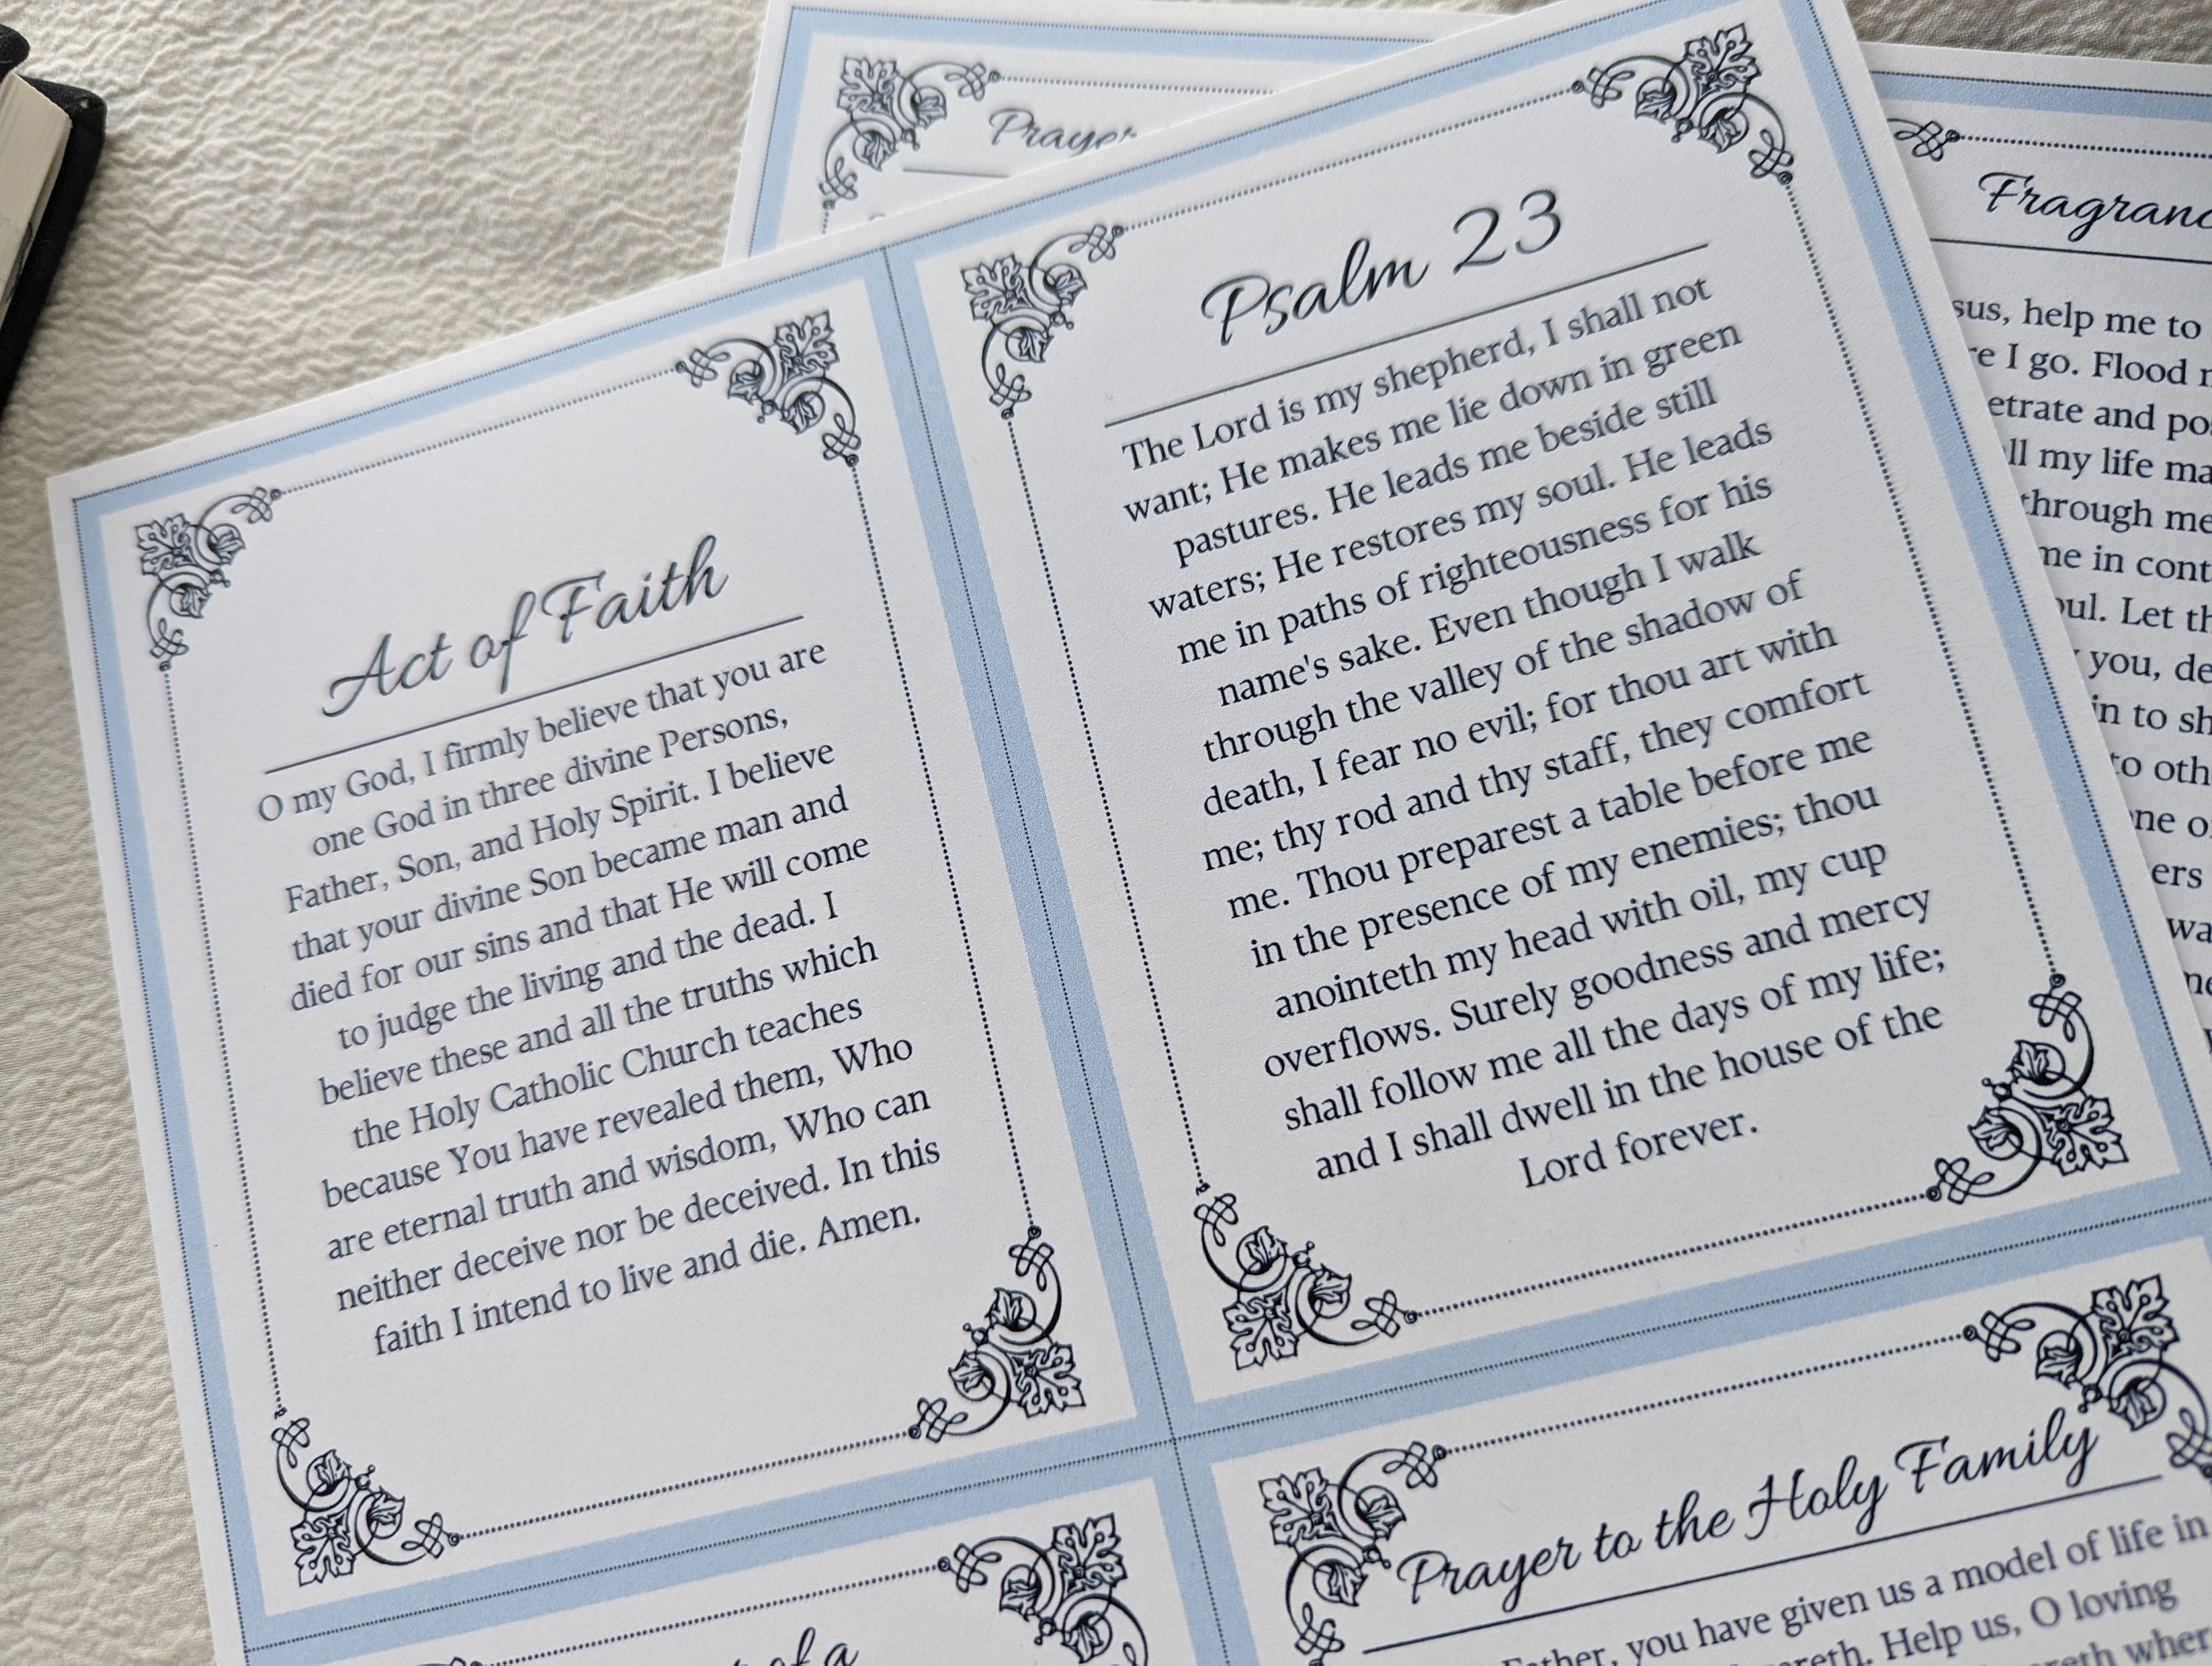 Prayer
Fragranc
sus, help me to
re I go. Flood
etrate and
ll my life
through me
me in
oul. Let
you,
in to
to
ers
Act of Faith
O my God, I firmly believe that you are
one God in three divine Persons,
Father, Son, and Holy Spirit. I believe
that your divine Son became man and
died for our sins and that He will come
to judge the living and the dead. I
believe these and all the truths which
the Holy Catholic Church teaches
because You have revealed them, Who
are eternal truth and wisdom, Who can
neither deceive nor be deceived. In this
faith I intend to live and die. Amen.
Psalm 23
The Lord is my shepherd, I shall not
want; He makes me lie down in green
pastures. He leads me beside still
waters; He restores my soul. He leads
me in paths of righteousness for his
name's sake. Even though I walk
through the valley of the shadow of
death, I fear no evil; for thou art with
me; thy rod and thy staff, they comfort
me. Thou preparest a table before me
in the presence of my enemies; thou
anointeth my head with oil, my cup
overflows. Surely goodness and mercy
shall follow me all the days of my life;
and I shall dwell in the house of the
Lord forever.
of a
Prayer to the Holy Family
Father, you have given us a model of life in
Help us, O loving